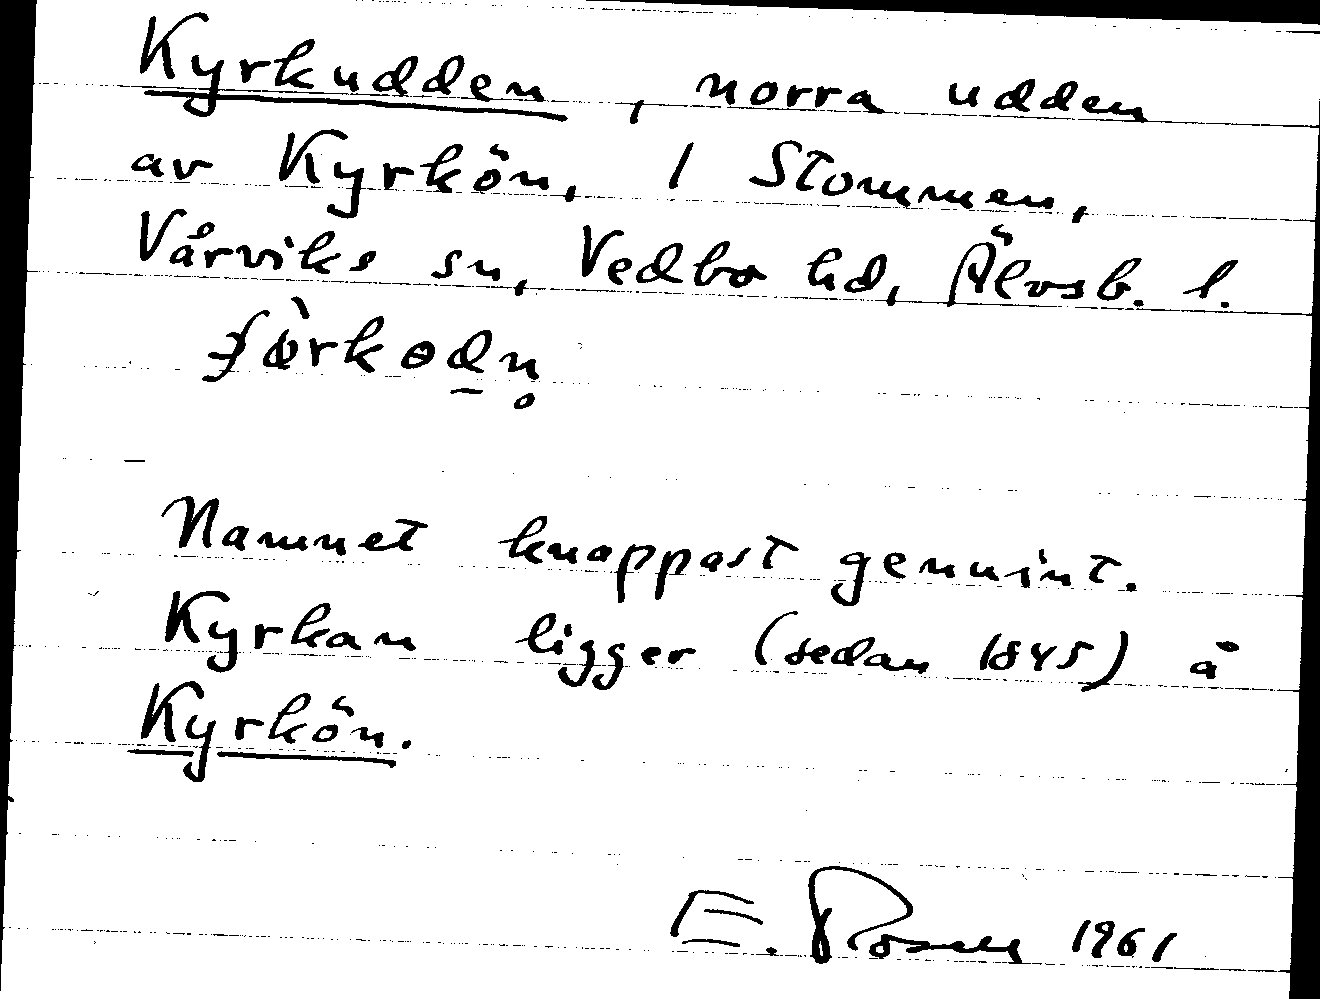 Kyrkudden, norra udden
av Kyrkön, 1 Stommen,
Vårviks sn, Vedbo hd, Älvsb. l.
Namnet knappast genuint.
Kyrkan ligger (sedan 1845) å
Kyrkön.
E. 1961